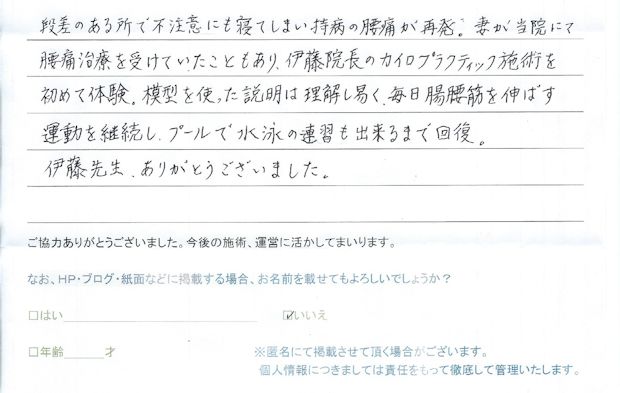 段差のある所で不注意にも寝てしまい持病の腰痛が再発。妻が当院にて
腰痛治療を受けていたこともあり、伊藤院長のカイロプラクティック施術を
初めて体験。模型を使った説明は理解し易く、毎日腸腰筋を伸ばす
運動を継続し、プールで水泳の練習も出来るまで回復。
伊藤先生、ありがとうございました。
ご協力ありがとうございました。今後の施術、運営に活かしてまいります。
なお、HP・ブログ・紙面などに掲載する場合、お名前を載せてもよろしいでしょうか？
□はい ☑いいえ
□年齢 才 ※匿名にて掲載させて頂く場合がございます。
個人情報につきましては責任をもって徹底して管理いたします。